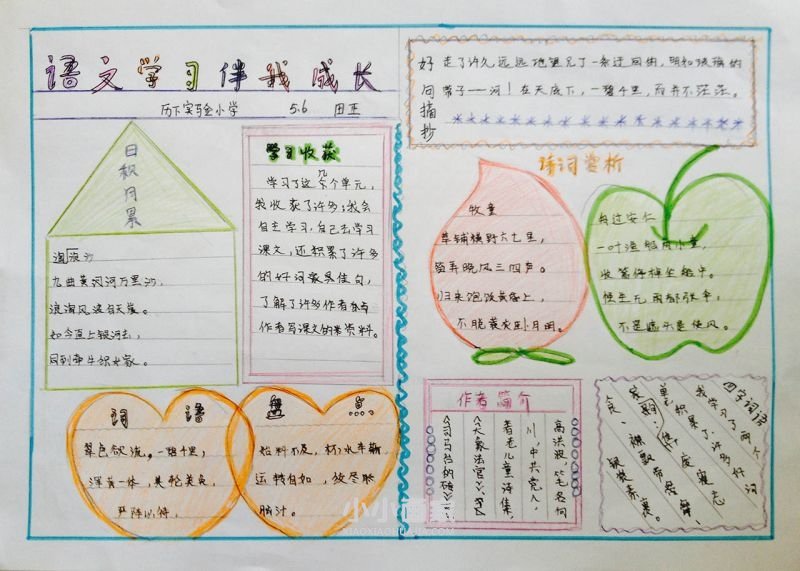 语文学习伴我成长
历下实验小学 5.6 田正
日积月累
浪淘沙
九曲黄河万里沙,
浪淘风簸自天涯。
如今直上银河去,
同到牵牛织女家。
学习收获
学习了这几个单元,
我收获了许多:我会
自主学习,自己去学习
课文,还积累了许多
的好词家易佳句,
了解了许多作者
作者写课文的 资料。
好句摘抄
走了许久,远远地望见了一条迂回的,明如玻璃的
带子——河!在天底下,一碧千里,而并不茫茫。
诗词赏析
牧童
草铺横野六七里,
笛弄晚风三四声。
归来饱饭黄昏上,
不脱蓑衣卧月明。
舟过安仁
一叶渔船两小童,
收篙停棹坐船中。
怪生无雨都张伞,
不是遮头是使风。
词语盘点
翠色欲流。一碧千里,
浑为一体,美轮美奂,
始料不及,
运转自如,绞尽脑
脑汁。
作者简介
高洪波,笔名向
川,中共党人,
著老儿童诗集,
《大象法官》
四字词语
我学习了两个
单,积累了许多好词
废寝忘
食,